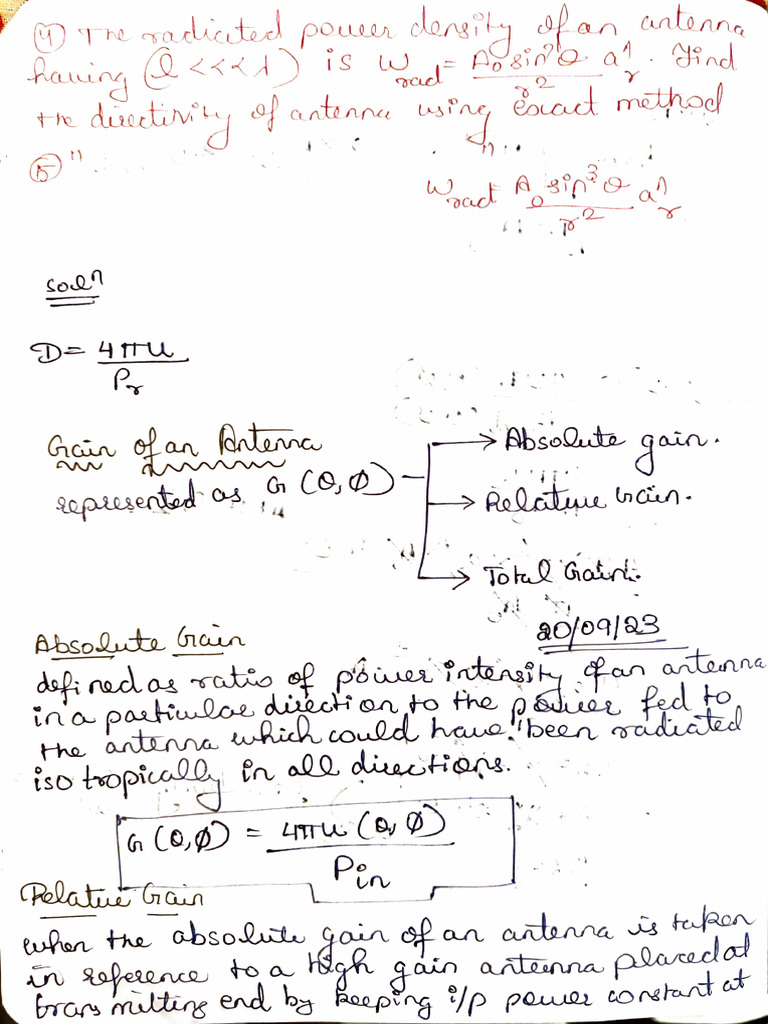 ④ The radiated power density of an antenna
having (l <<< λ) is W_rad = A₀ sin²θ / r² a^_r. Find
the directivity of antenna using exact method
⑤ " "
W_rad = A₀ sin³θ / r² a^_r
Soln
D = 4πU / P_r
Gain of an Antenna
represented as G (θ, Ø)
→ Absolute gain.
→ Relative Gain.
→ Total Gain.
20/09/23
Absolute Gain
defined as ratio of power intensity of an antenna
in a particular direction to the power fed to
the antenna which could have been radiated
isotropically in all directions.
G (θ, Ø) = 4πU (θ, Ø) / Pin
Relative Gain
when the absolute gain of an antenna is taken
in reference to a high gain antenna placed at
transmitting end by keeping i/p power constant at